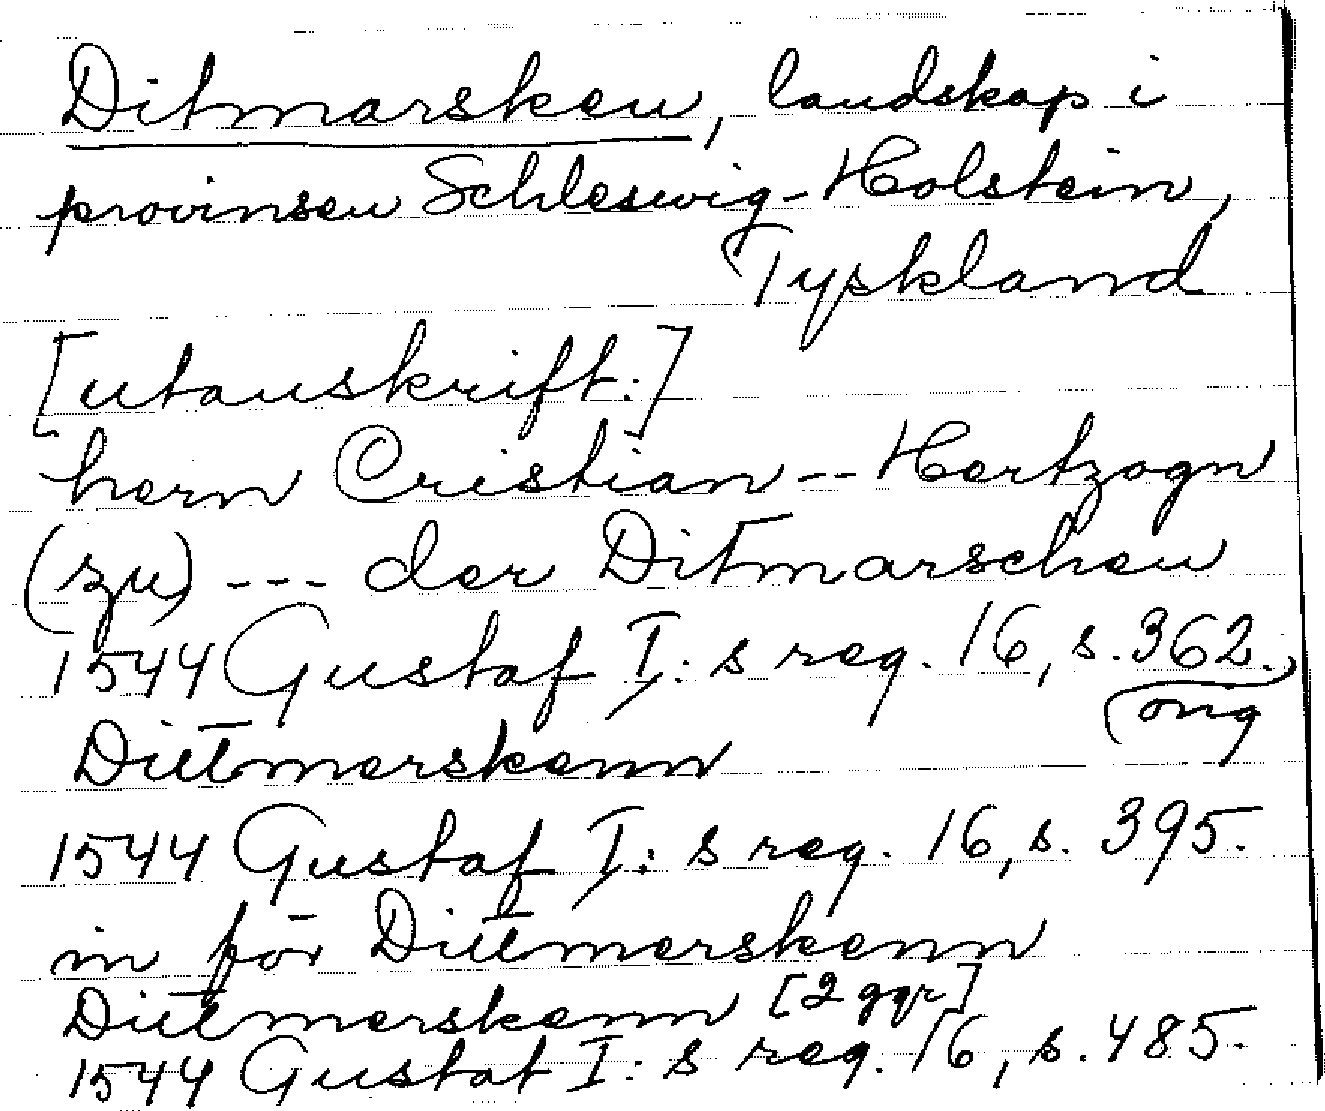 Ditmarsken, landskap i
provinsen Schleswig-Holstein,
Tyskland
[utanskrift:]
hern Cristian -- Hertzogn
(zu) --- der Ditmarschen
1544 Gustaf I:s reg. 16, s. 362.
orig
Dittmerskenn
1544 Gustaf I:s reg. 16, s. 395.
in för Dittmerskenn
Dittmerskenn [2 ggr]
1544 Gustaf I:s reg. 16, s. 485.